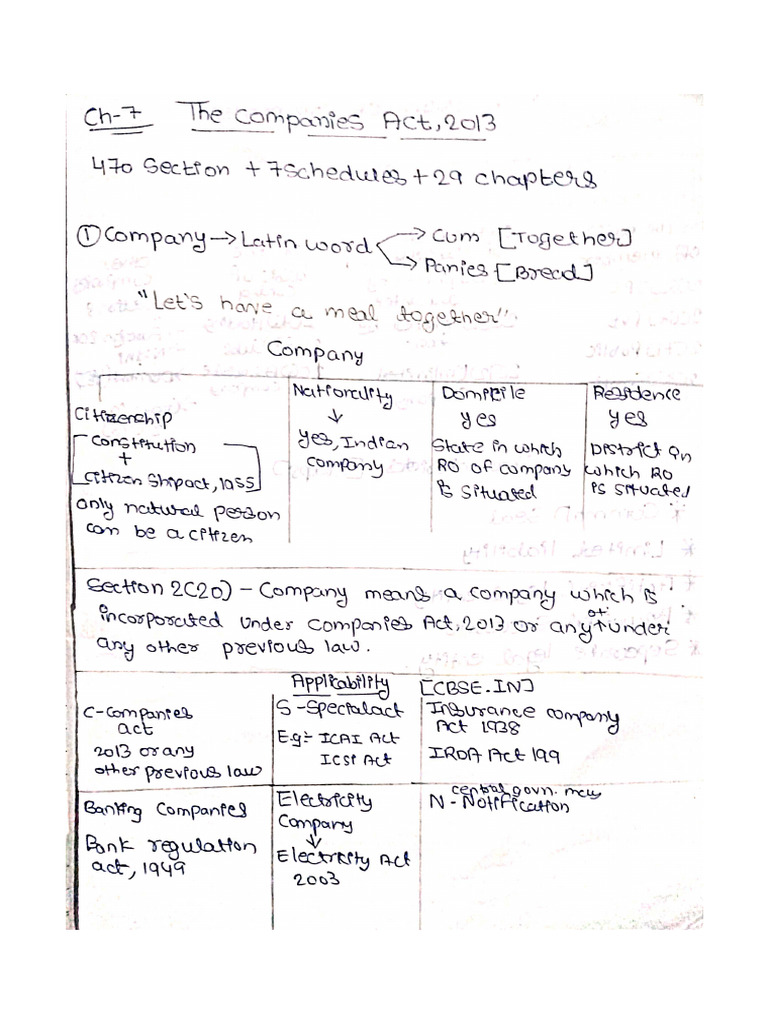 Ch-7 The Companies Act, 2013
470 Section + 7 schedules + 29 chapters
① Company → Latin word → Cum [Together]
→ Panies [Bread]
"Let's have a meal together".
Company
Citizenship
Constitution
+
Citizen Ship act, 1955
only natural person
can be a citizen
Nationality
↓
Yes, Indian
Company
Domicile
yes
State in which
RO of company
is situated
Residence
yes
District in
which RO
is situated
Section 2(20) - Company means a company which is
incorporated under Companies Act, 2013 or any of under
any other previous law.
Applicability [CBSE.IN]
C-Companies
act
2013 or any
other previous law
S-Special act
E.g:- ICAI Act
ICSI Act
Insurance company
Act 1938
IRDA Act 199
Banking Companies
Bank regulation
act, 1949
Electricity
Company
↓
Electricity Act
2003
central govn. may
N-Notification